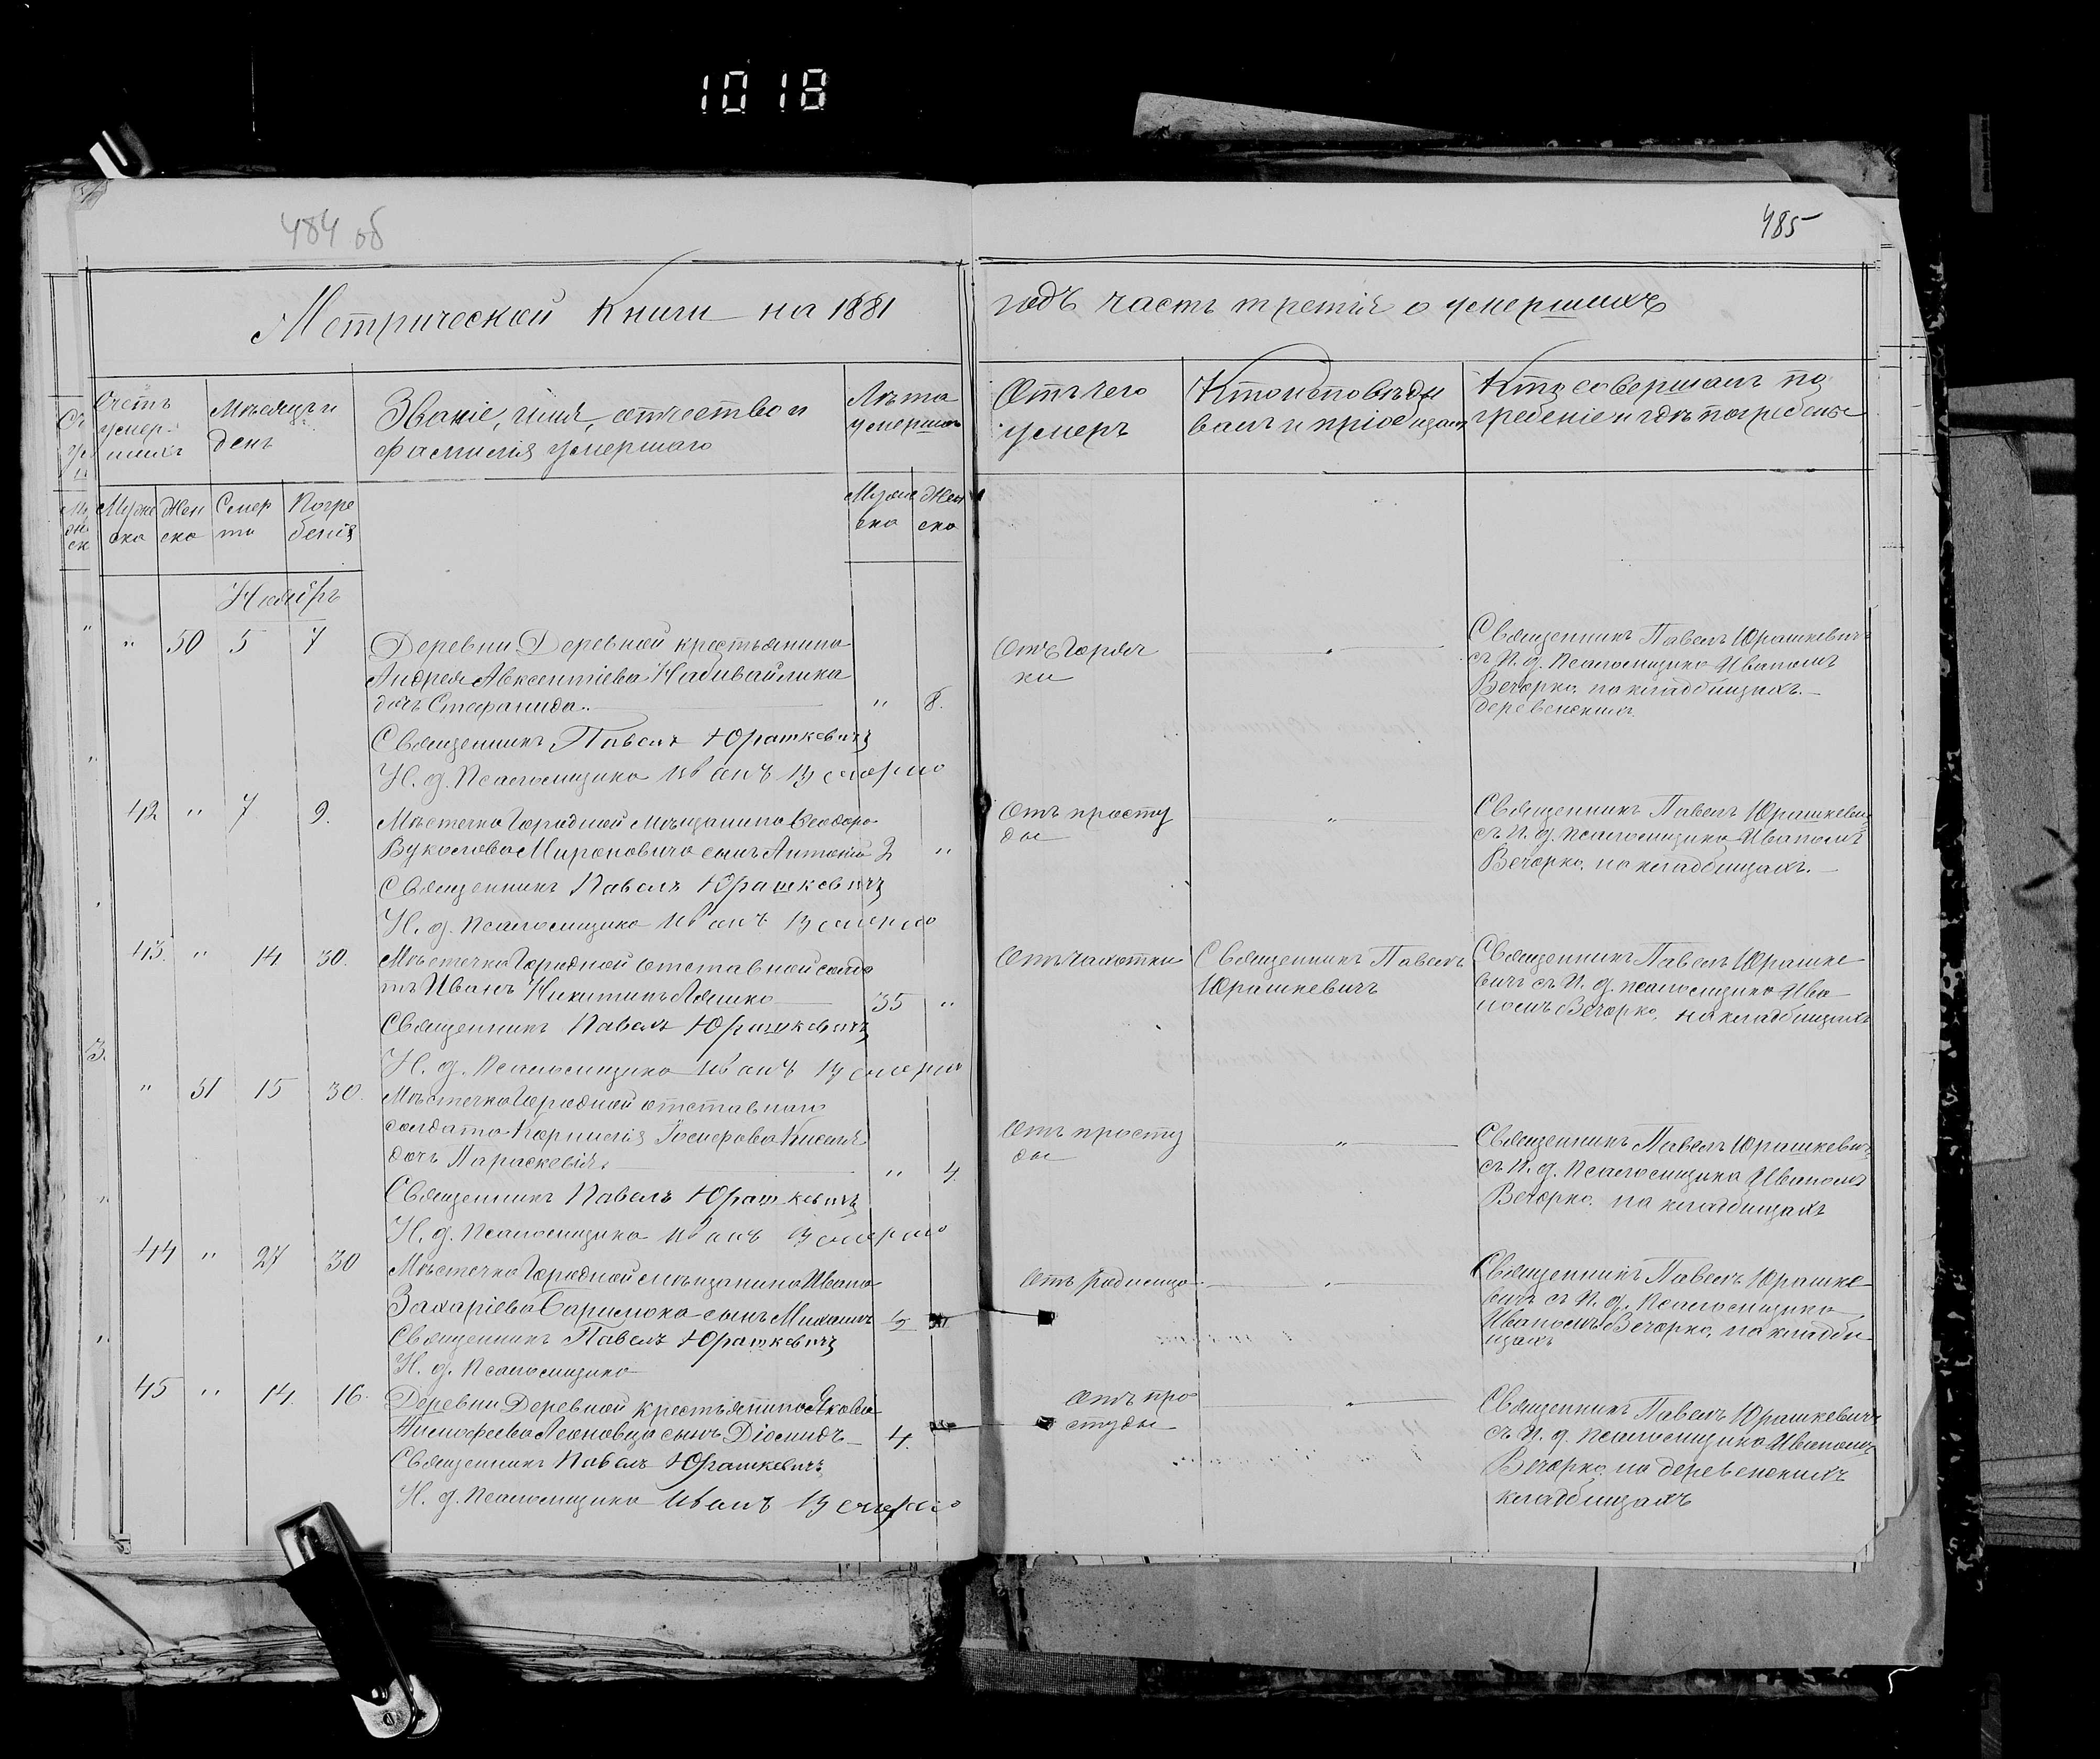 1018
484 об
485
Метрической Книги на 1881
годъ часть третія о умершихъ
Счетъ умер-шихъ
Мѣсяцъ и день
Званіе, имя, отчество и фамилія умершаго
Лѣта умершаго
Отъ чего умеръ
Кто исповѣды валъ и пріобщалъ
Кто совершалъ по гребеніе и гдѣ погребены
Муже ска
Жен ска
Смер ти
Погре бенія
Муже ска
Жен ска
Ноябрь
" 50 5 7
Деревни Деревной крестьянина
Андрея Авксентіева
дочь Стефанида. " 8.
Отъ Горяч
ки
Священникъ Павелъ Юрашкевичъ
съ И. д. Псаломщика Иваномъ
Вечорко, на кладбищахъ
деревенскихъ.
Священникъ Павелъ Юрашкевичъ
И. д. Псаломщика Иванъ
42 " 7 9.
Мѣстечка Городной мѣщанина Ѳеодора
Вуколова Мироновича сынъ Антоній 2 "
Отъ просту
ды
"
Священникъ Павелъ Юрашкевичъ
съ И. д. Псаломщика Иваномъ
Вечорко, на кладбищахъ.
Священникъ Павелъ Юрашкевичъ
И. д. Псаломщика Иванъ
43. " 14 30.
Мѣстечка Городной отставной солда
тъ Иванъ Никитинъ Ляшко 35 "
Отъ чахотки
Священникъ Павелъ
Юрашкевичъ
Священникъ Павелъ Юрашке
вичъ съ И. д. псаломщика Ива
номъ Вечорко, на кладбищахъ
Священникъ Павелъ Юрашкевичъ
И. д. Псаломщика Иванъ
" 51 15 30.
Мѣстечка Городной отставного
солдата Корнилія Іосифова
дочь Параскевія. " 4.
Отъ просту
ды
"
Священникъ Павелъ Юрашкевичъ
съ И. д. Псаломщика Иваномъ
Вечорко, на кладбищахъ
Священникъ Павелъ Юрашкевичъ
И. д. Псаломщика Иванъ
44 " 27 30
Мѣстечка Городной мѣщанина Ивана
Захаріева сынъ Михаилъ
Отъ родимца
Священникъ Павелъ Юрашке
вичъ съ И. д. Псаломщика
Иваномъ Вечорко, на кладби
щахъ
Священникъ Павелъ Юрашкевичъ
И. д. Псаломщика
45 " 14. 16.
Деревни Деревной крестьянина Якова
Тимофеева Леоновца сынъ Діомидъ 4.
Отъ про
студы
Священникъ Павелъ Юрашкевичъ
съ И. д. Псаломщика Иваномъ
Вечорко, на деревенскихъ
кладбищахъ
Священникъ Павелъ Юрашкевичъ
И. д. Псаломщика Иванъ